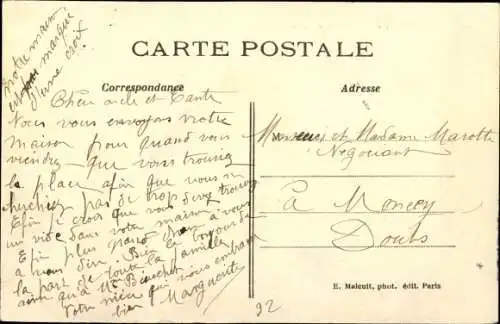 notre maison
est marquée
d'une croix.
CARTE POSTALE
Correspondance
Adresse
Cher oncle et Tante
Nous vous envoyons notre
maison pour quand vous
viendrez que vous trouviez
la place afin que vous ne
cherchiez pas de trop
Enfin je crois que vous devez trouver
un vide dans votre maison
Enfin plus grand chose à vous
à vous dire. Bien le bonjour de
la part de toute la famille
ainsi qu'à Mr
Votre nièce qui vous embrasse
bien Marguerite
Monsieur et Madame Marotte
Négociant
à Moncey
Doubs
E. Malcuit, phot. édit. Paris
92